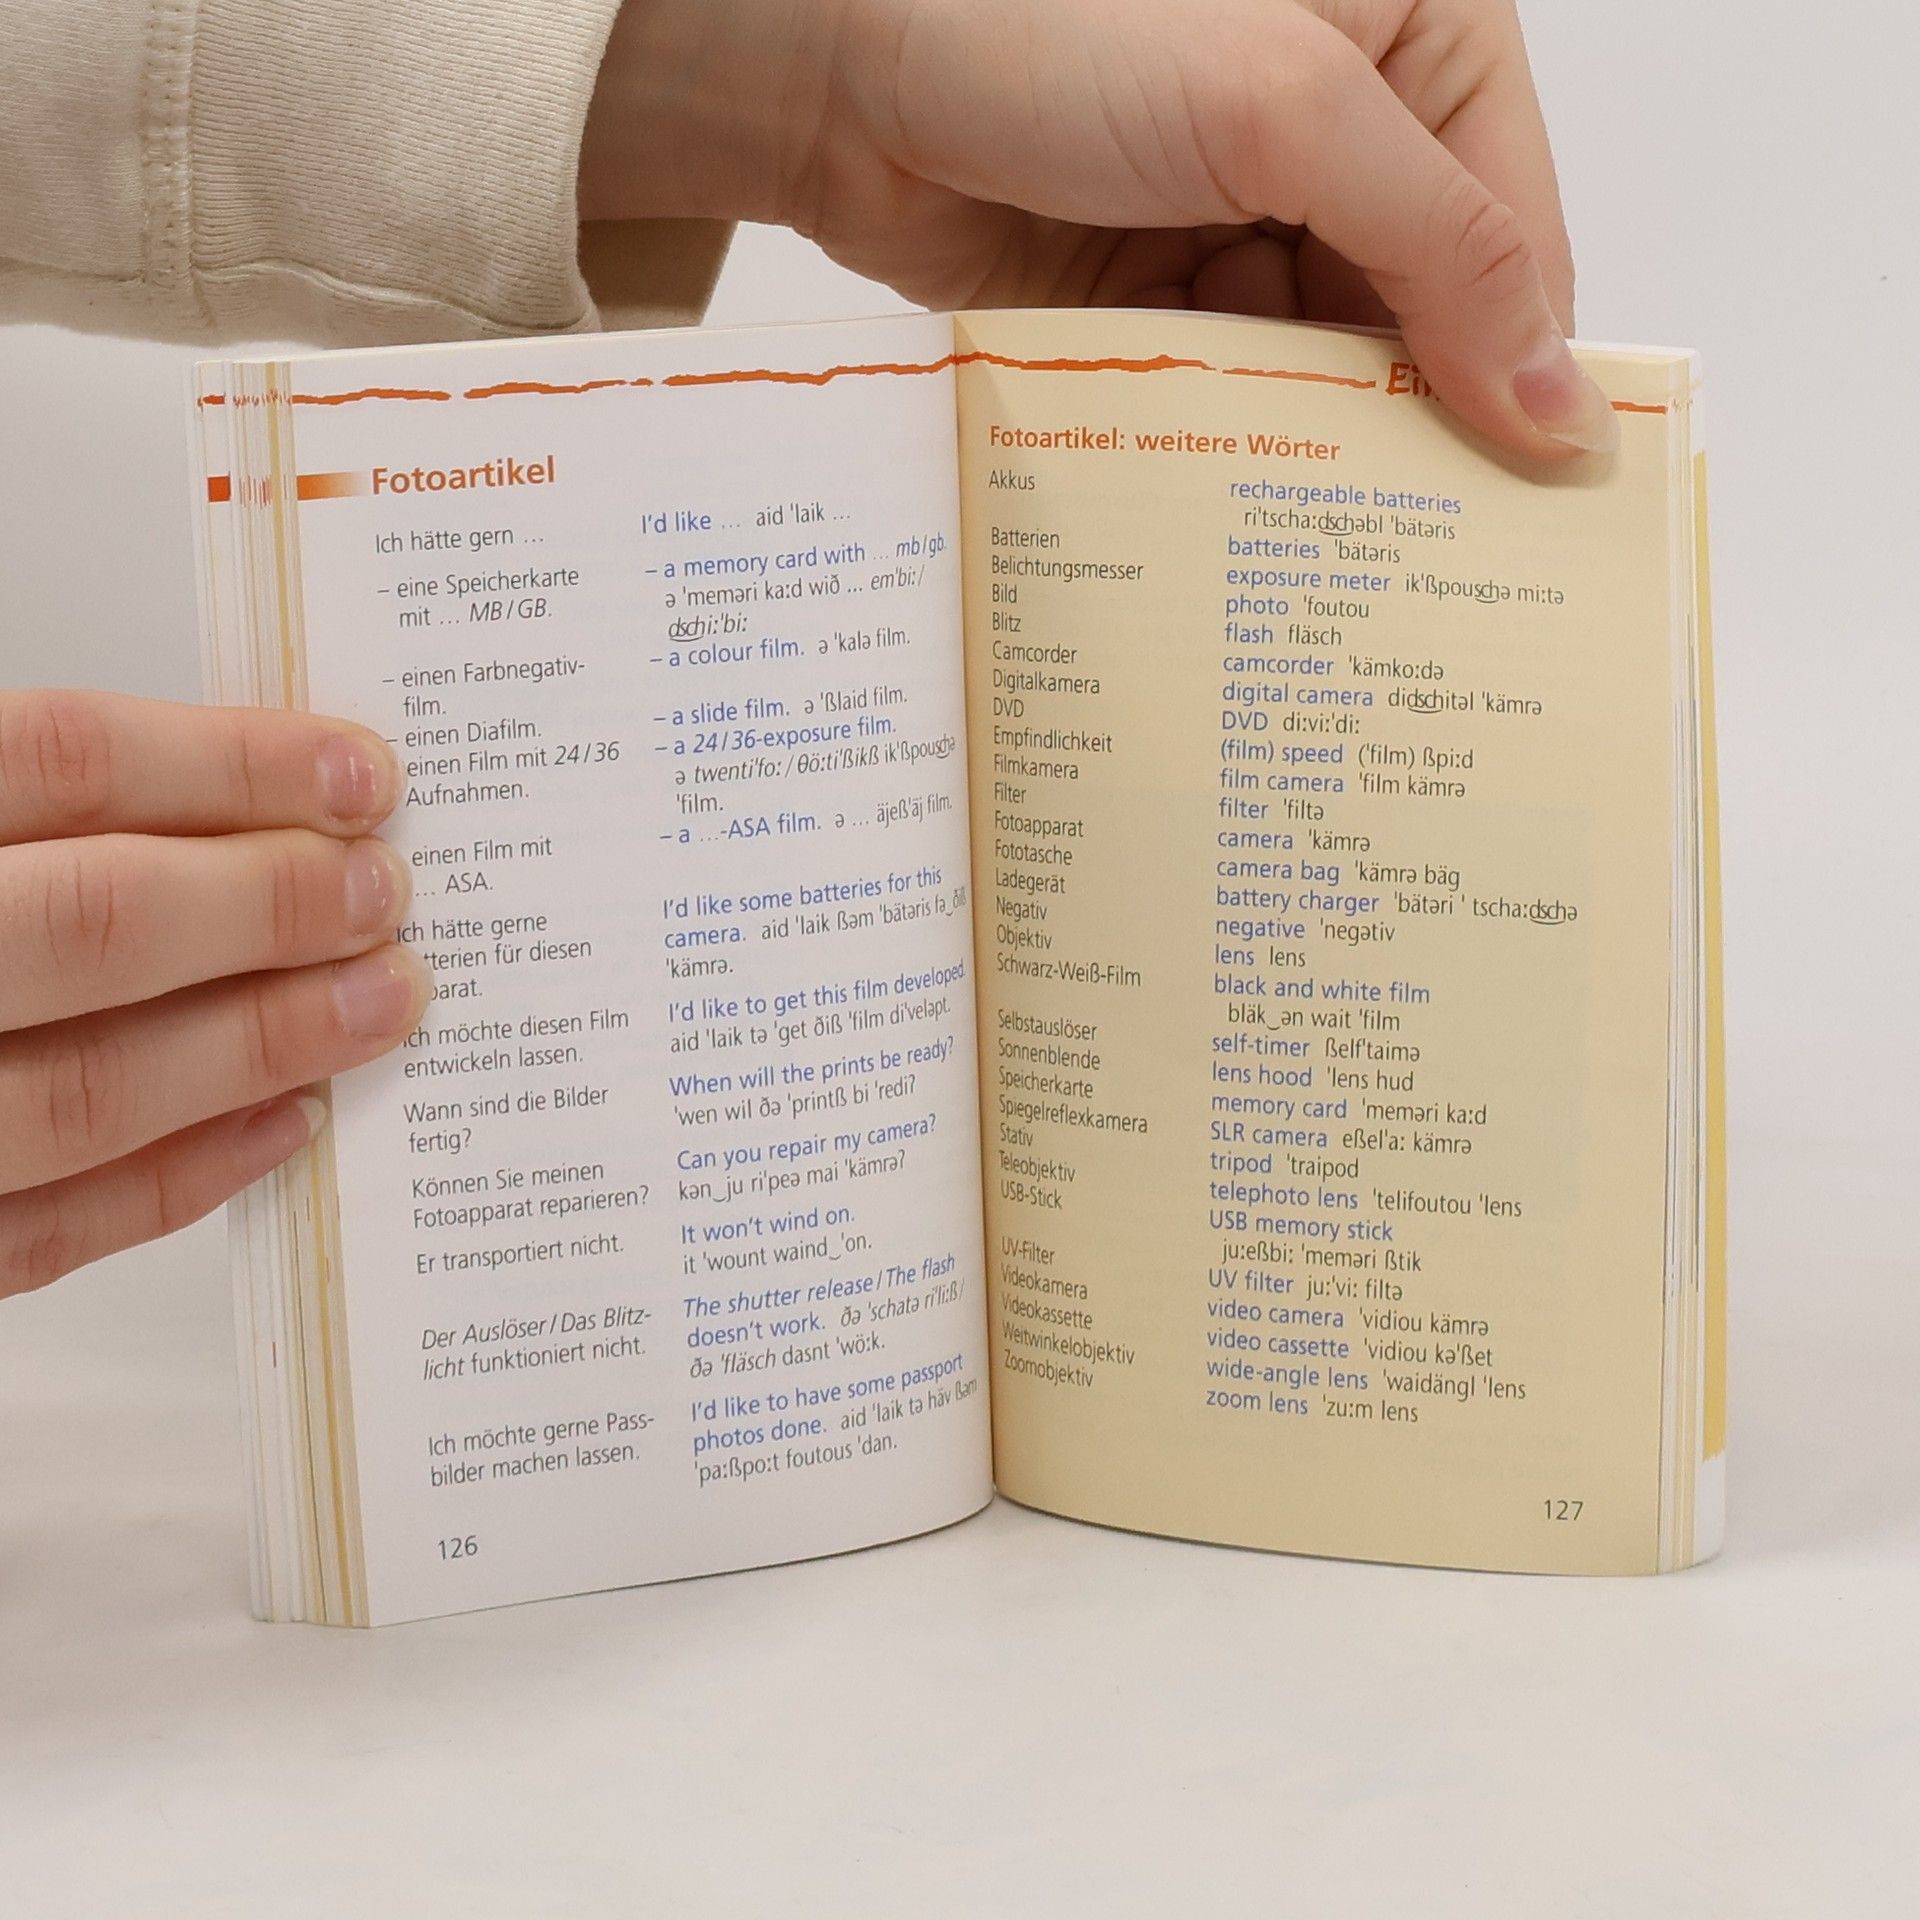 Fotoartikel
Ich hätte gern …
I'd like … aid 'laik …
– eine Speicherkarte
mit … MB/GB.
– a memory card with … mb/gb.
ə 'meməri ka:d wið … em'bi:/
dschi:'bi:
– einen Farbnegativ-
film.
– a colour film. ə 'kalə film.
– einen Diafilm.
– a slide film. ə 'ßlaid film.
einen Film mit 24/36
Aufnahmen.
– a 24/36-exposure film.
ə twenti'fo:/θö:ti'ßikß ik'ßpouschə
'film.
einen Film mit
… ASA.
– a …-ASA film. ə … äjeß'äj film.
Ich hätte gerne
tterien für diesen
parat.
I'd like some batteries for this
camera. aid 'laik ßəm 'bätəris fə‿ðiß
'kämrə.
Ich möchte diesen Film
entwickeln lassen.
I'd like to get this film developed.
aid 'laik tə 'get ðiß 'film di'veləpt.
Wann sind die Bilder
fertig?
When will the prints be ready?
'wen wil ðə 'printß bi 'redi?
Können Sie meinen
Fotoapparat reparieren?
Can you repair my camera?
kən‿ju ri'peə mai 'kämrə?
Er transportiert nicht.
It won't wind on.
it 'wount waind‿'on.
Der Auslöser/Das Blitz-
licht funktioniert nicht.
The shutter release/The flash
doesn't work. ðə 'schatə ri'li:ß/
ðə 'fläsch dasnt 'wö:k.
Ich möchte gerne Pass-
bilder machen lassen.
I'd like to have some passport
photos done. aid 'laik tə häv ßəm
'pa:ßpo:t foutous 'dan.
126
Fotoartikel: weitere Wörter
Akkus rechargeable batteries
ri'tscha:dschəbl 'bätəris
Batterien batteries 'bätəris
Belichtungsmesser exposure meter ik'ßpouschə mi:tə
Bild photo 'foutou
Blitz flash fläsch
Camcorder camcorder 'kämko:də
Digitalkamera digital camera didschitəl 'kämrə
DVD DVD di:vi:'di:
Empfindlichkeit (film) speed ('film) ßpi:d
Filmkamera film camera 'film kämrə
Filter filter 'filtə
Fotoapparat camera 'kämrə
Fototasche camera bag 'kämrə bäg
Ladegerät battery charger 'bätəri ' tscha:dschə
Negativ negative 'negətiv
Objektiv lens lens
Schwarz-Weiß-Film black and white film
bläk‿ən wait 'film
Selbstauslöser self-timer ßelf'taimə
Sonnenblende lens hood 'lens hud
Speicherkarte memory card 'meməri ka:d
Spiegelreflexkamera SLR camera eßel'a: kämrə
Stativ tripod 'traipod
Teleobjektiv telephoto lens 'telifoutou 'lens
USB-Stick USB memory stick
ju:eßbi: 'meməri ßtik
UV-Filter UV filter ju:'vi: filtə
Videokamera video camera 'vidiou kämrə
Videokassette video cassette 'vidiou kə'ßet
Weitwinkelobjektiv wide-angle lens 'waidängl 'lens
Zoomobjektiv zoom lens 'zu:m lens
127